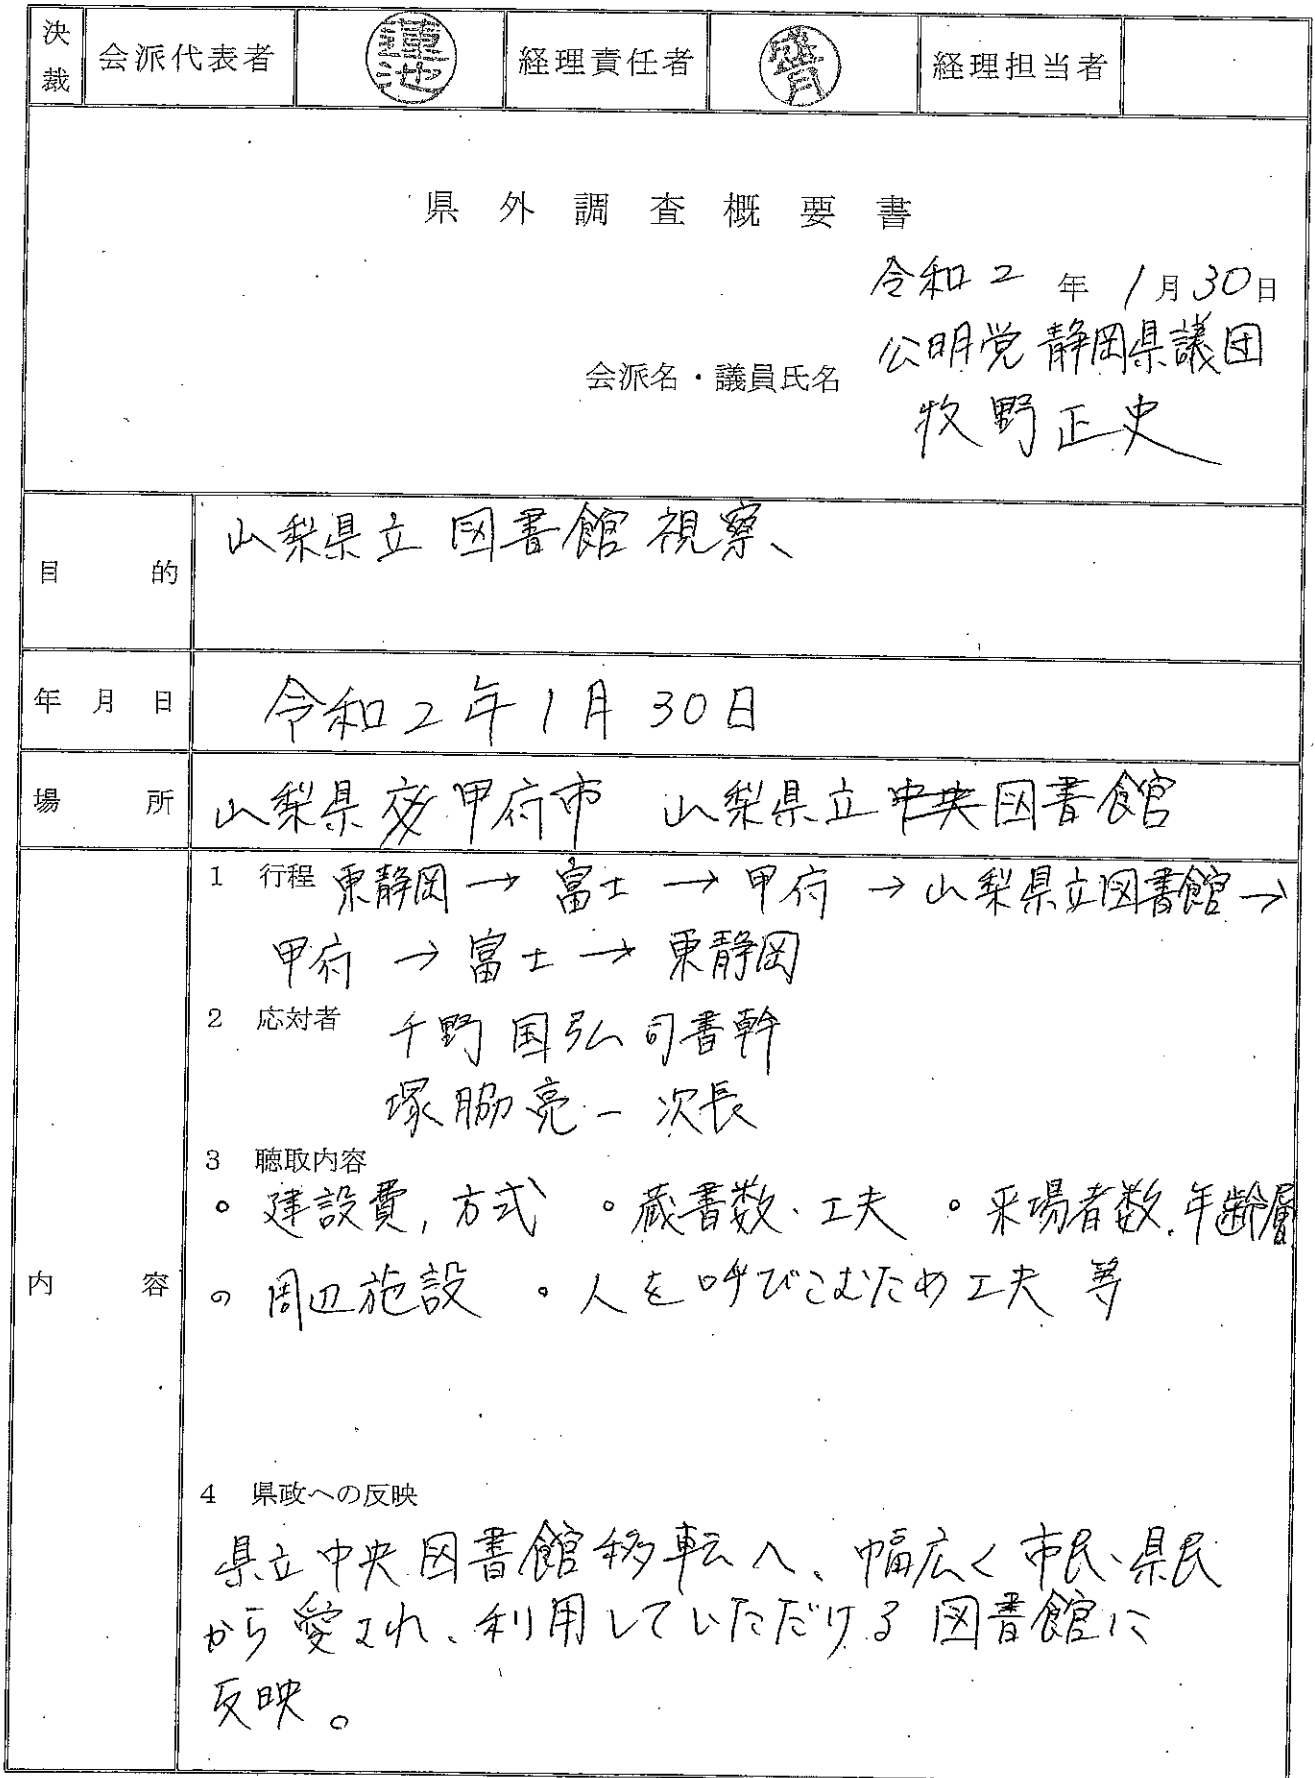 決裁 会派代表者 蓮池 経理責任者 経理担当者
県外調査概要書
令和2年1月30日
会派名・議員氏名 公明党静岡県議団
牧野正史
目的 山梨県立図書館視察、
年月日 令和2年1月30日
場所 山梨県 甲府市 山梨県立中央図書館
内容
1 行程 東静岡→富士→甲府→山梨県立図書館→
甲府→富士→東静岡
2 応対者 千野国弘司書幹
塚脇亮一次長
3 聴取内容
。建設費,方式 。蔵書数、工夫 。来場者数、年齢層
。周辺施設 。人を呼びこむため工夫 等
4 県政への反映
県立中央図書館移転へ、幅広く市民、県民
から愛され、利用していただける図書館に
反映。